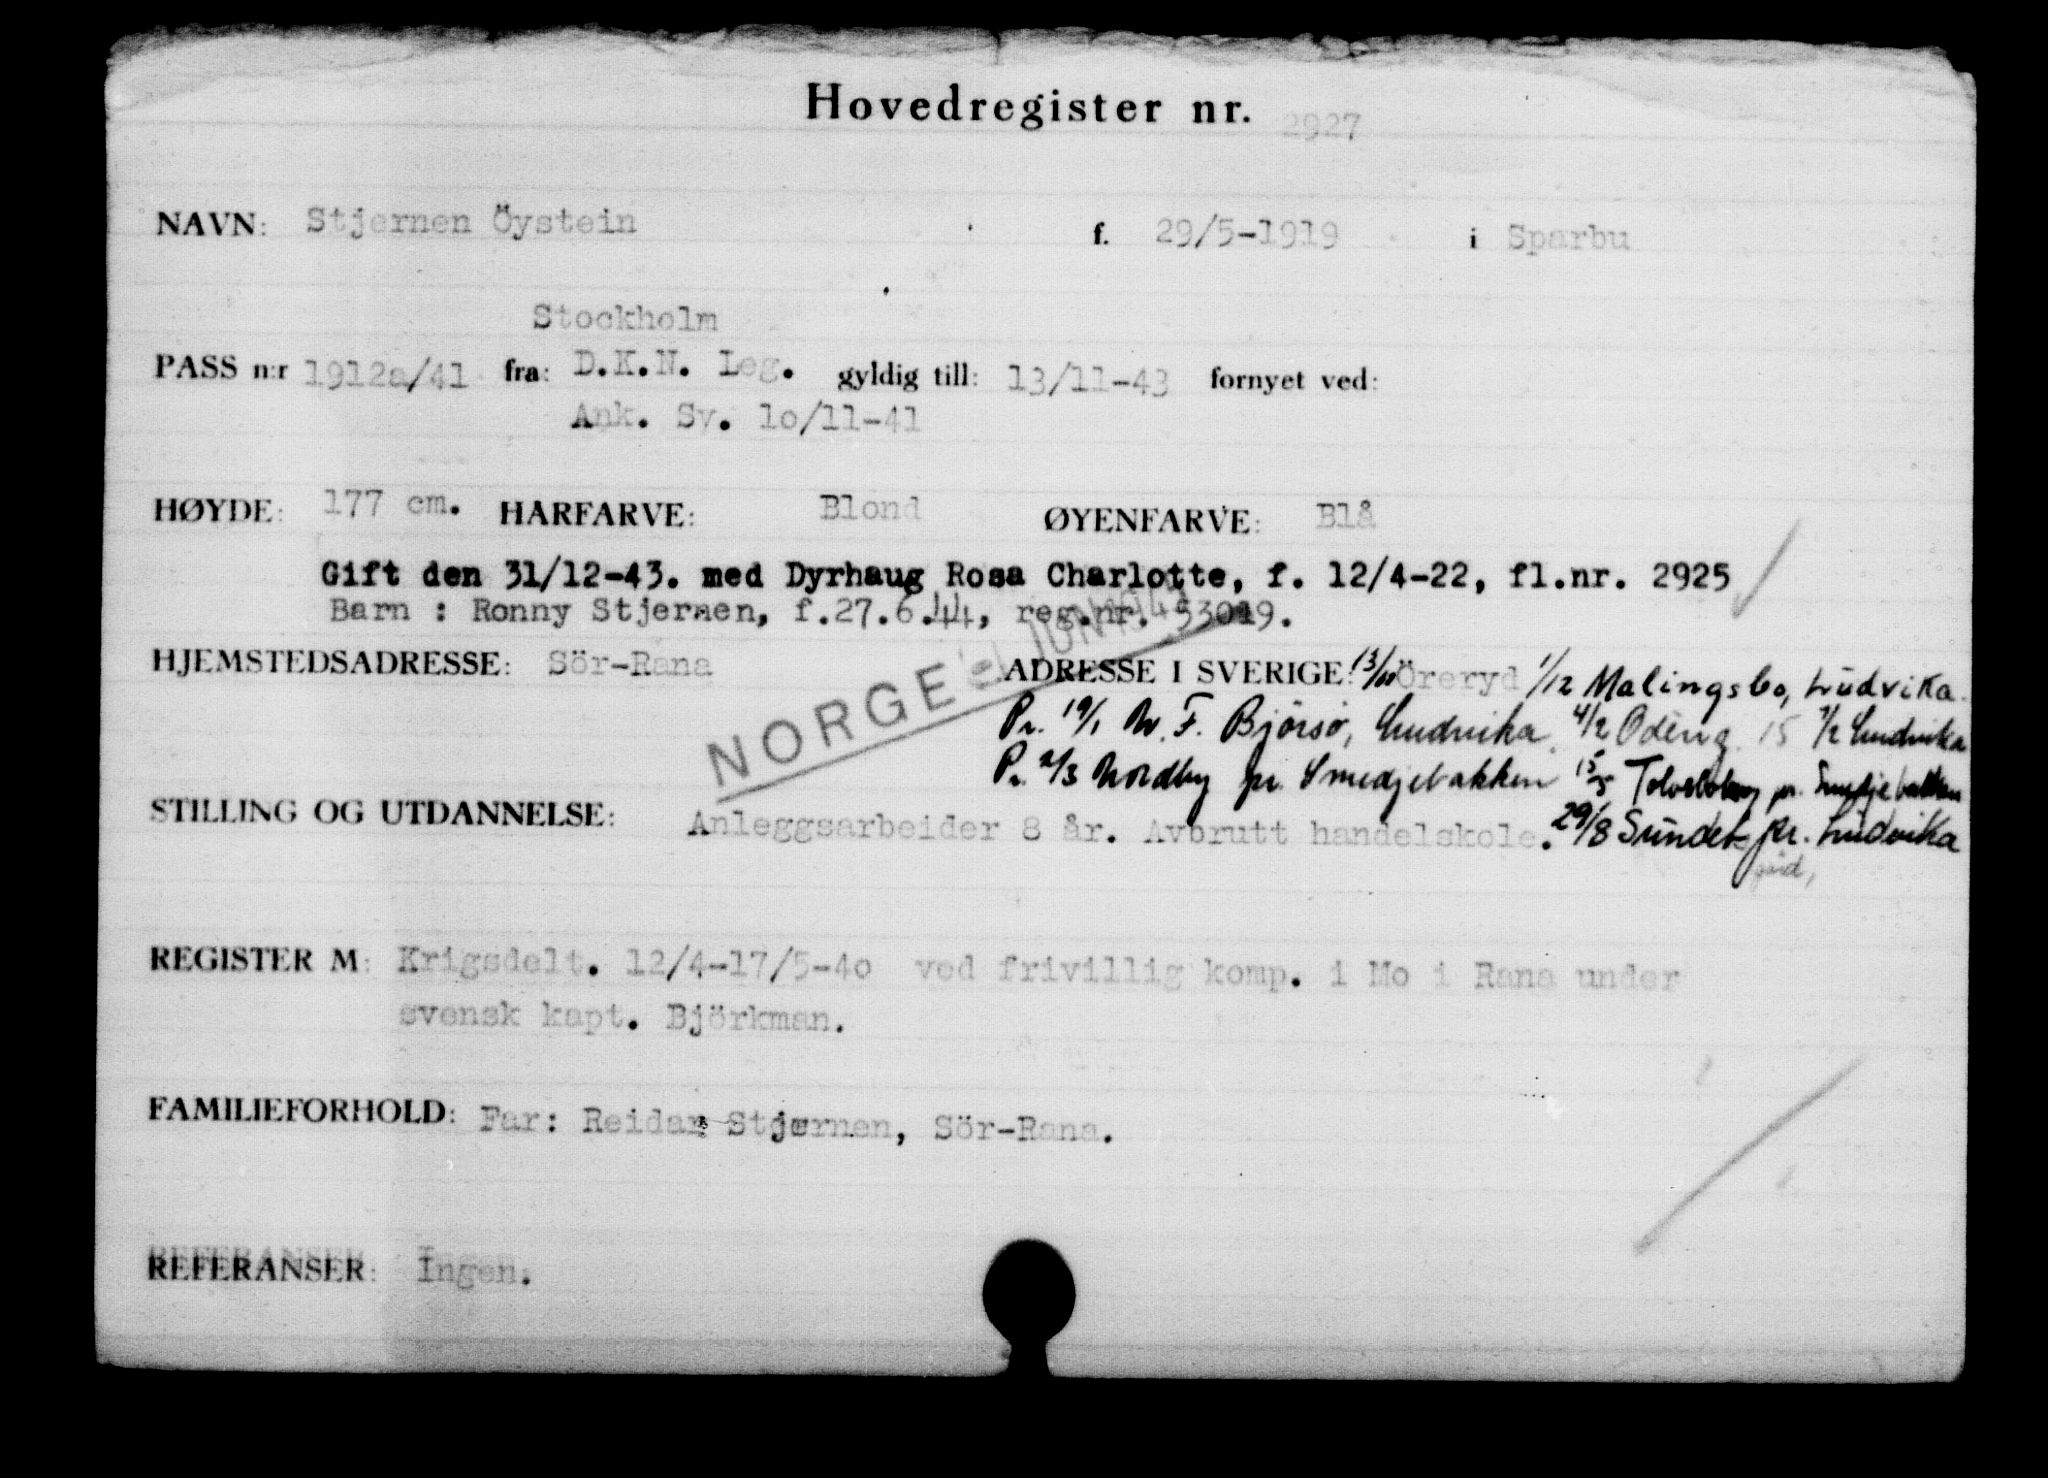 Hovedregister nr. 2927
NAVN: Stjernen Öystein f. 29/5-1919 i Sparbu
Stockholm
PASS n:r 1912a/41 fra: D.K.N. Leg. gyldig till: 13/11-43 fornyet ved:
Ank. Sv. 1o/11-41
HØYDE: 177 cm. HARFARVE: Blond ØYENFARVE: Blå
Gift den 31/12-43. med Dyrhaug Rosa Charlotte, f. 12/4-22, fl.nr. 2925
Barn : Ronny Stjernen, f.27.6.44, reg.nr. 53019.
HJEMSTEDSADRESSE: Sör-Rana ADRESSE I SVERIGE: 13/11 Öreryd 1/12 Malingsbo, Ludvika.
NORGE
Pr. 19/1 N. F. Björsjö, Ludvika. 4/2 Odeng. 15 7/2 Ludvika
Pr. 2/3 Nordby pr. Smedjebakken 15/5 pr. Smedjebakken
STILLING OG UTDANNELSE: Anleggsarbeider 8 år. Avbrutt handelskole. 29/8 Sundet pr. Ludvika
REGISTER M: Krigsdelt. 12/4-17/5-4o ved frivillig komp. i Mo i Rana under
svensk kapt. Björkman.
FAMILIEFORHOLD: Far: Reidar Stjernen, Sör-Rana.
REFERANSER: Ingen.